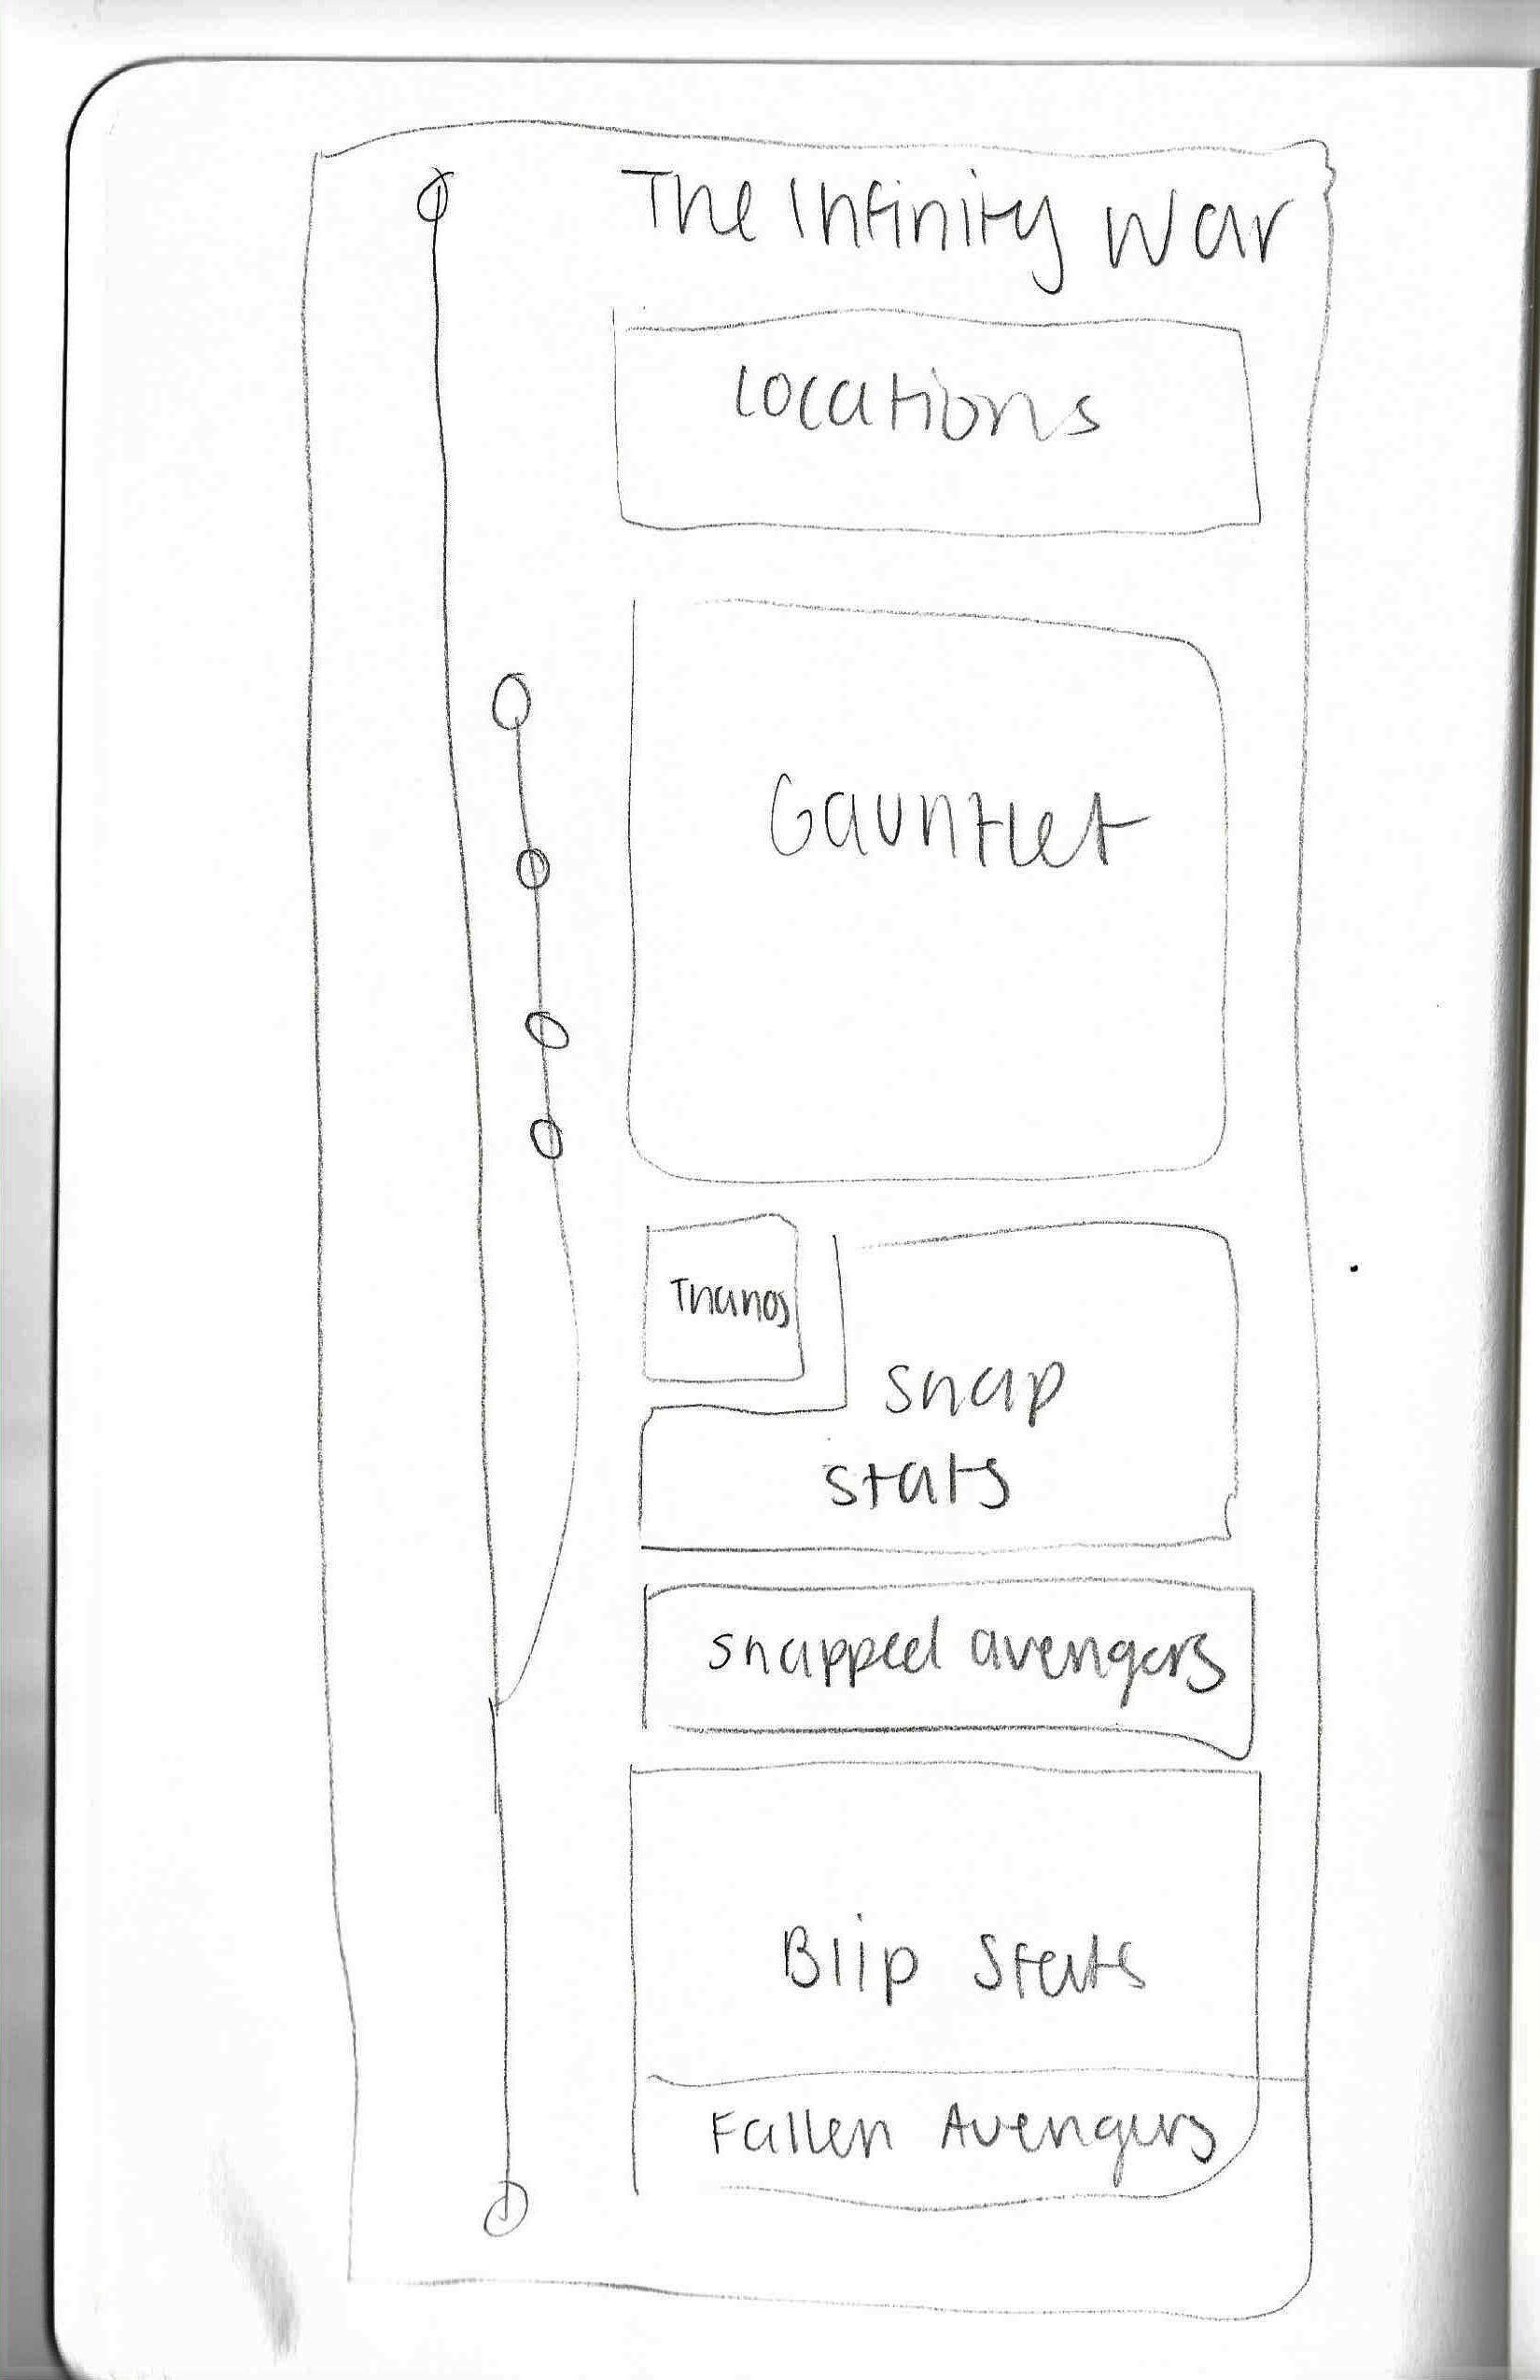 The Infinity War
Locations
Gauntlet
Thanos
Snap
Stats
Snapped avengers
Blip Stats
Fallen Avengers